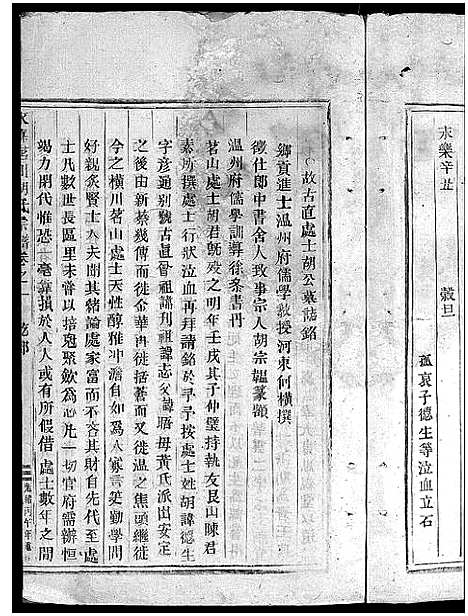 永樂辛丑 穀旦
孤哀子德生等泣血立石
故古直處士胡公墓誌銘
鄉貢進士溫州府儒學教授河東何橫撰
徵仕郎中書舍人致事宗人胡宗韞篆額
溫州府儒學訓導徐棻書丹
茗山處士胡君既歿之明年壬戌其子仲璧持執友艮山陳君
素所撰行狀泣血再拜請銘於予予按處士姓胡諱德生
字彥通別號古直曾祖諱刊祖諱志父諱晦毋黃氏派出安定
之後由新蔡幾傳而徙金華再徙括蒼而又徙溫之焦頭繼徙
今之橫川茗山處士天性醇雅冲澹自如為人寡言笑勤學問
好親炙賢士大夫聞其緒論處家富而不吝其財自先代至處
士凡數世長區里未嘗以掊剋聚歛為心凡一切官府需辦恒
竭力閑代惟恐一毫靠損于人人或有所假借處士數年之間
胡氏宗譜卷之二
光緒丙午年